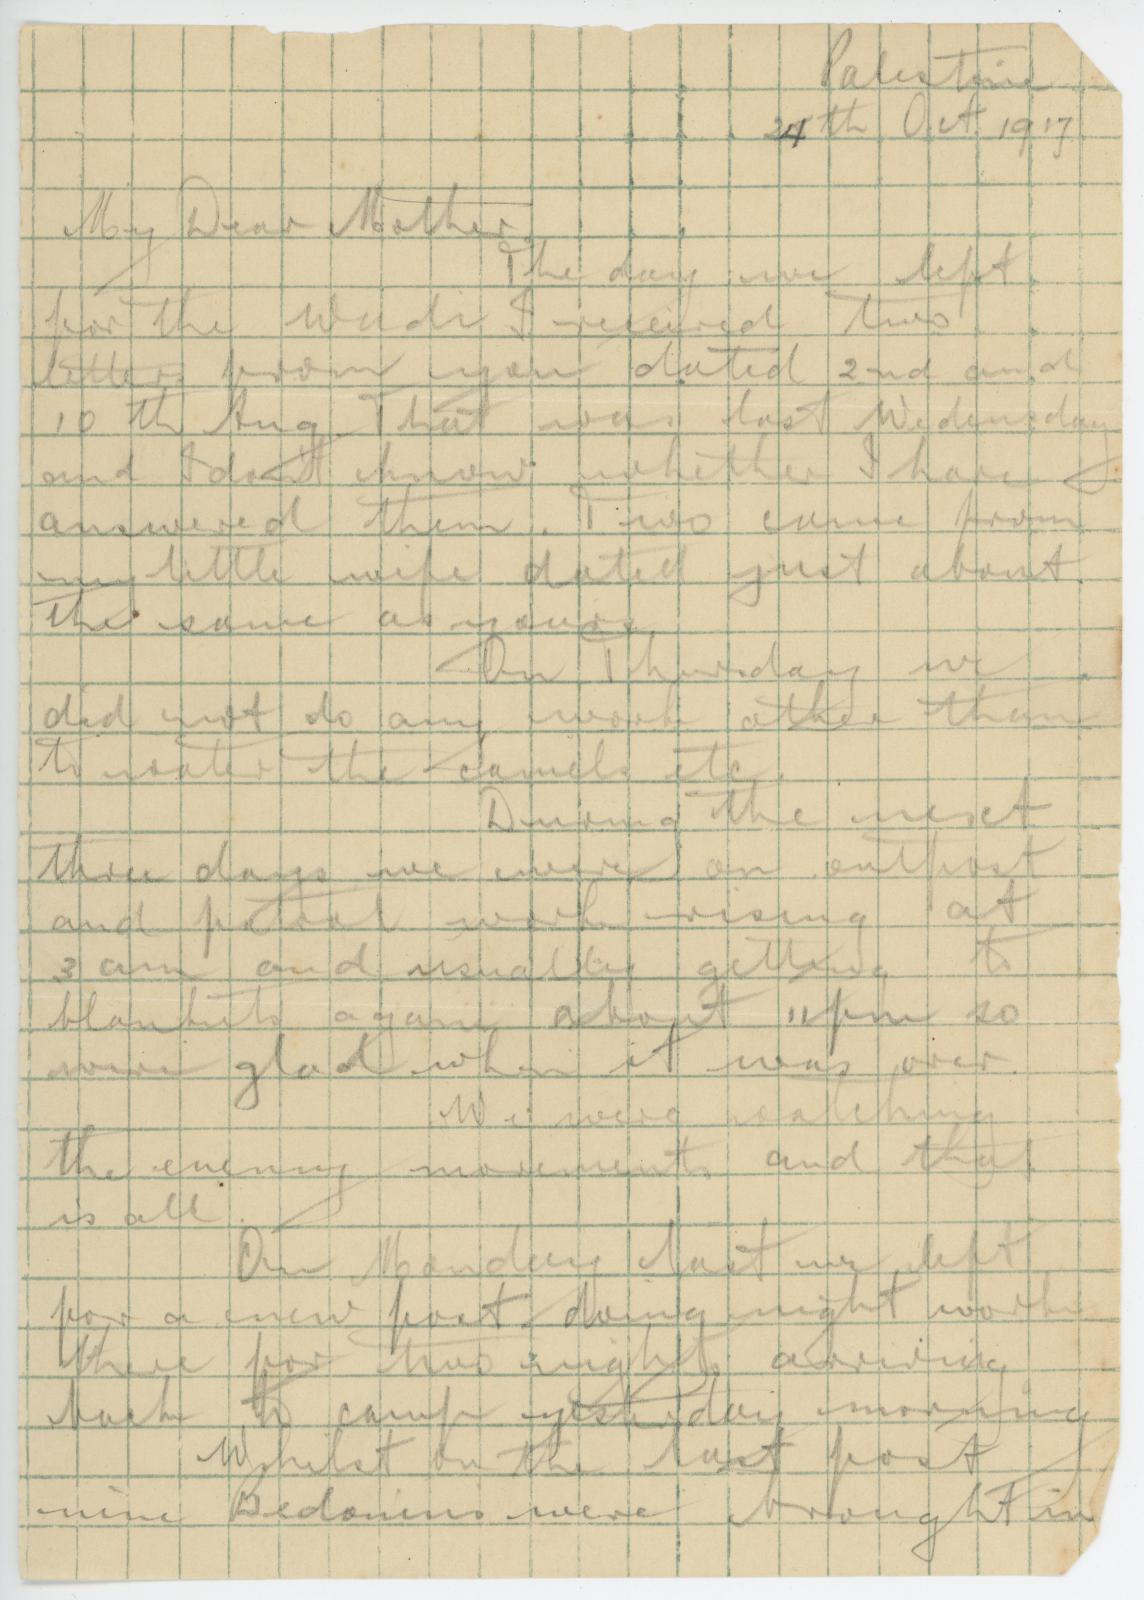 Palestine
24th Oct 1917
My Dear Mother,
The day we left
for the Wadi I received two
letters from you dated 2nd and
10th Aug. That was last Wedensday
and I don't know whether I have
answered them. Two came from
my little wife dated just about
the same as yours.
On Thursday we
did not do any work other than
to water the camels etc.
During the next
three days we were on outpost
and patrol work rising at
3 am and usually getting to
blankets again about 11 pm so
were glad when it was over.
We were watching
the enemy movements and that
is all.
On Monday last we left
for a new post doing night work
there for two nights arriving
back to camp yesterday morning
Whilst on the last post
nine Bedouins were brought in